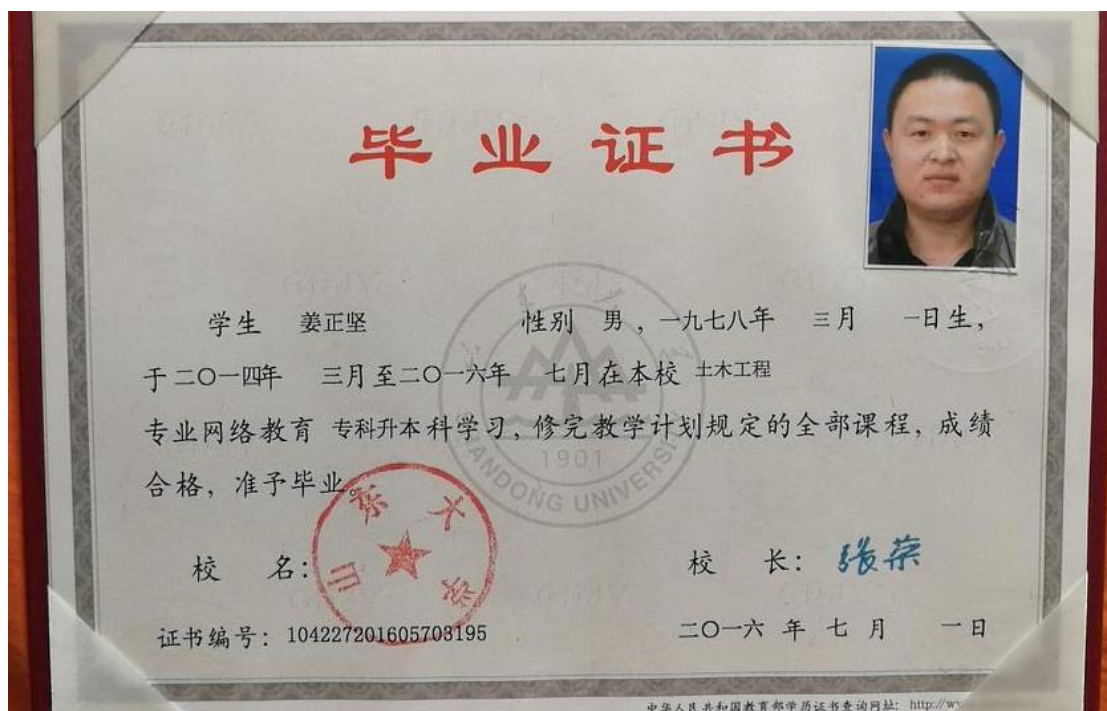 毕业证书
学生 姜正坚 性别 男，一九七八年 三月 一日生，
于二〇一四年 三月至二〇一六年 七月在本校 土木工程
专业网络教育 专科升本科学习，修完教学计划规定的全部课程，成绩
合格，准予毕业。
1901
SHANDONG UNIVERSITY
山东大学
校 名： 校 长： 张荣
证书编号：104227201605703195 二〇一六 年 七 月 一日
中华人民共和国教育部学历证书查询网址：http://w